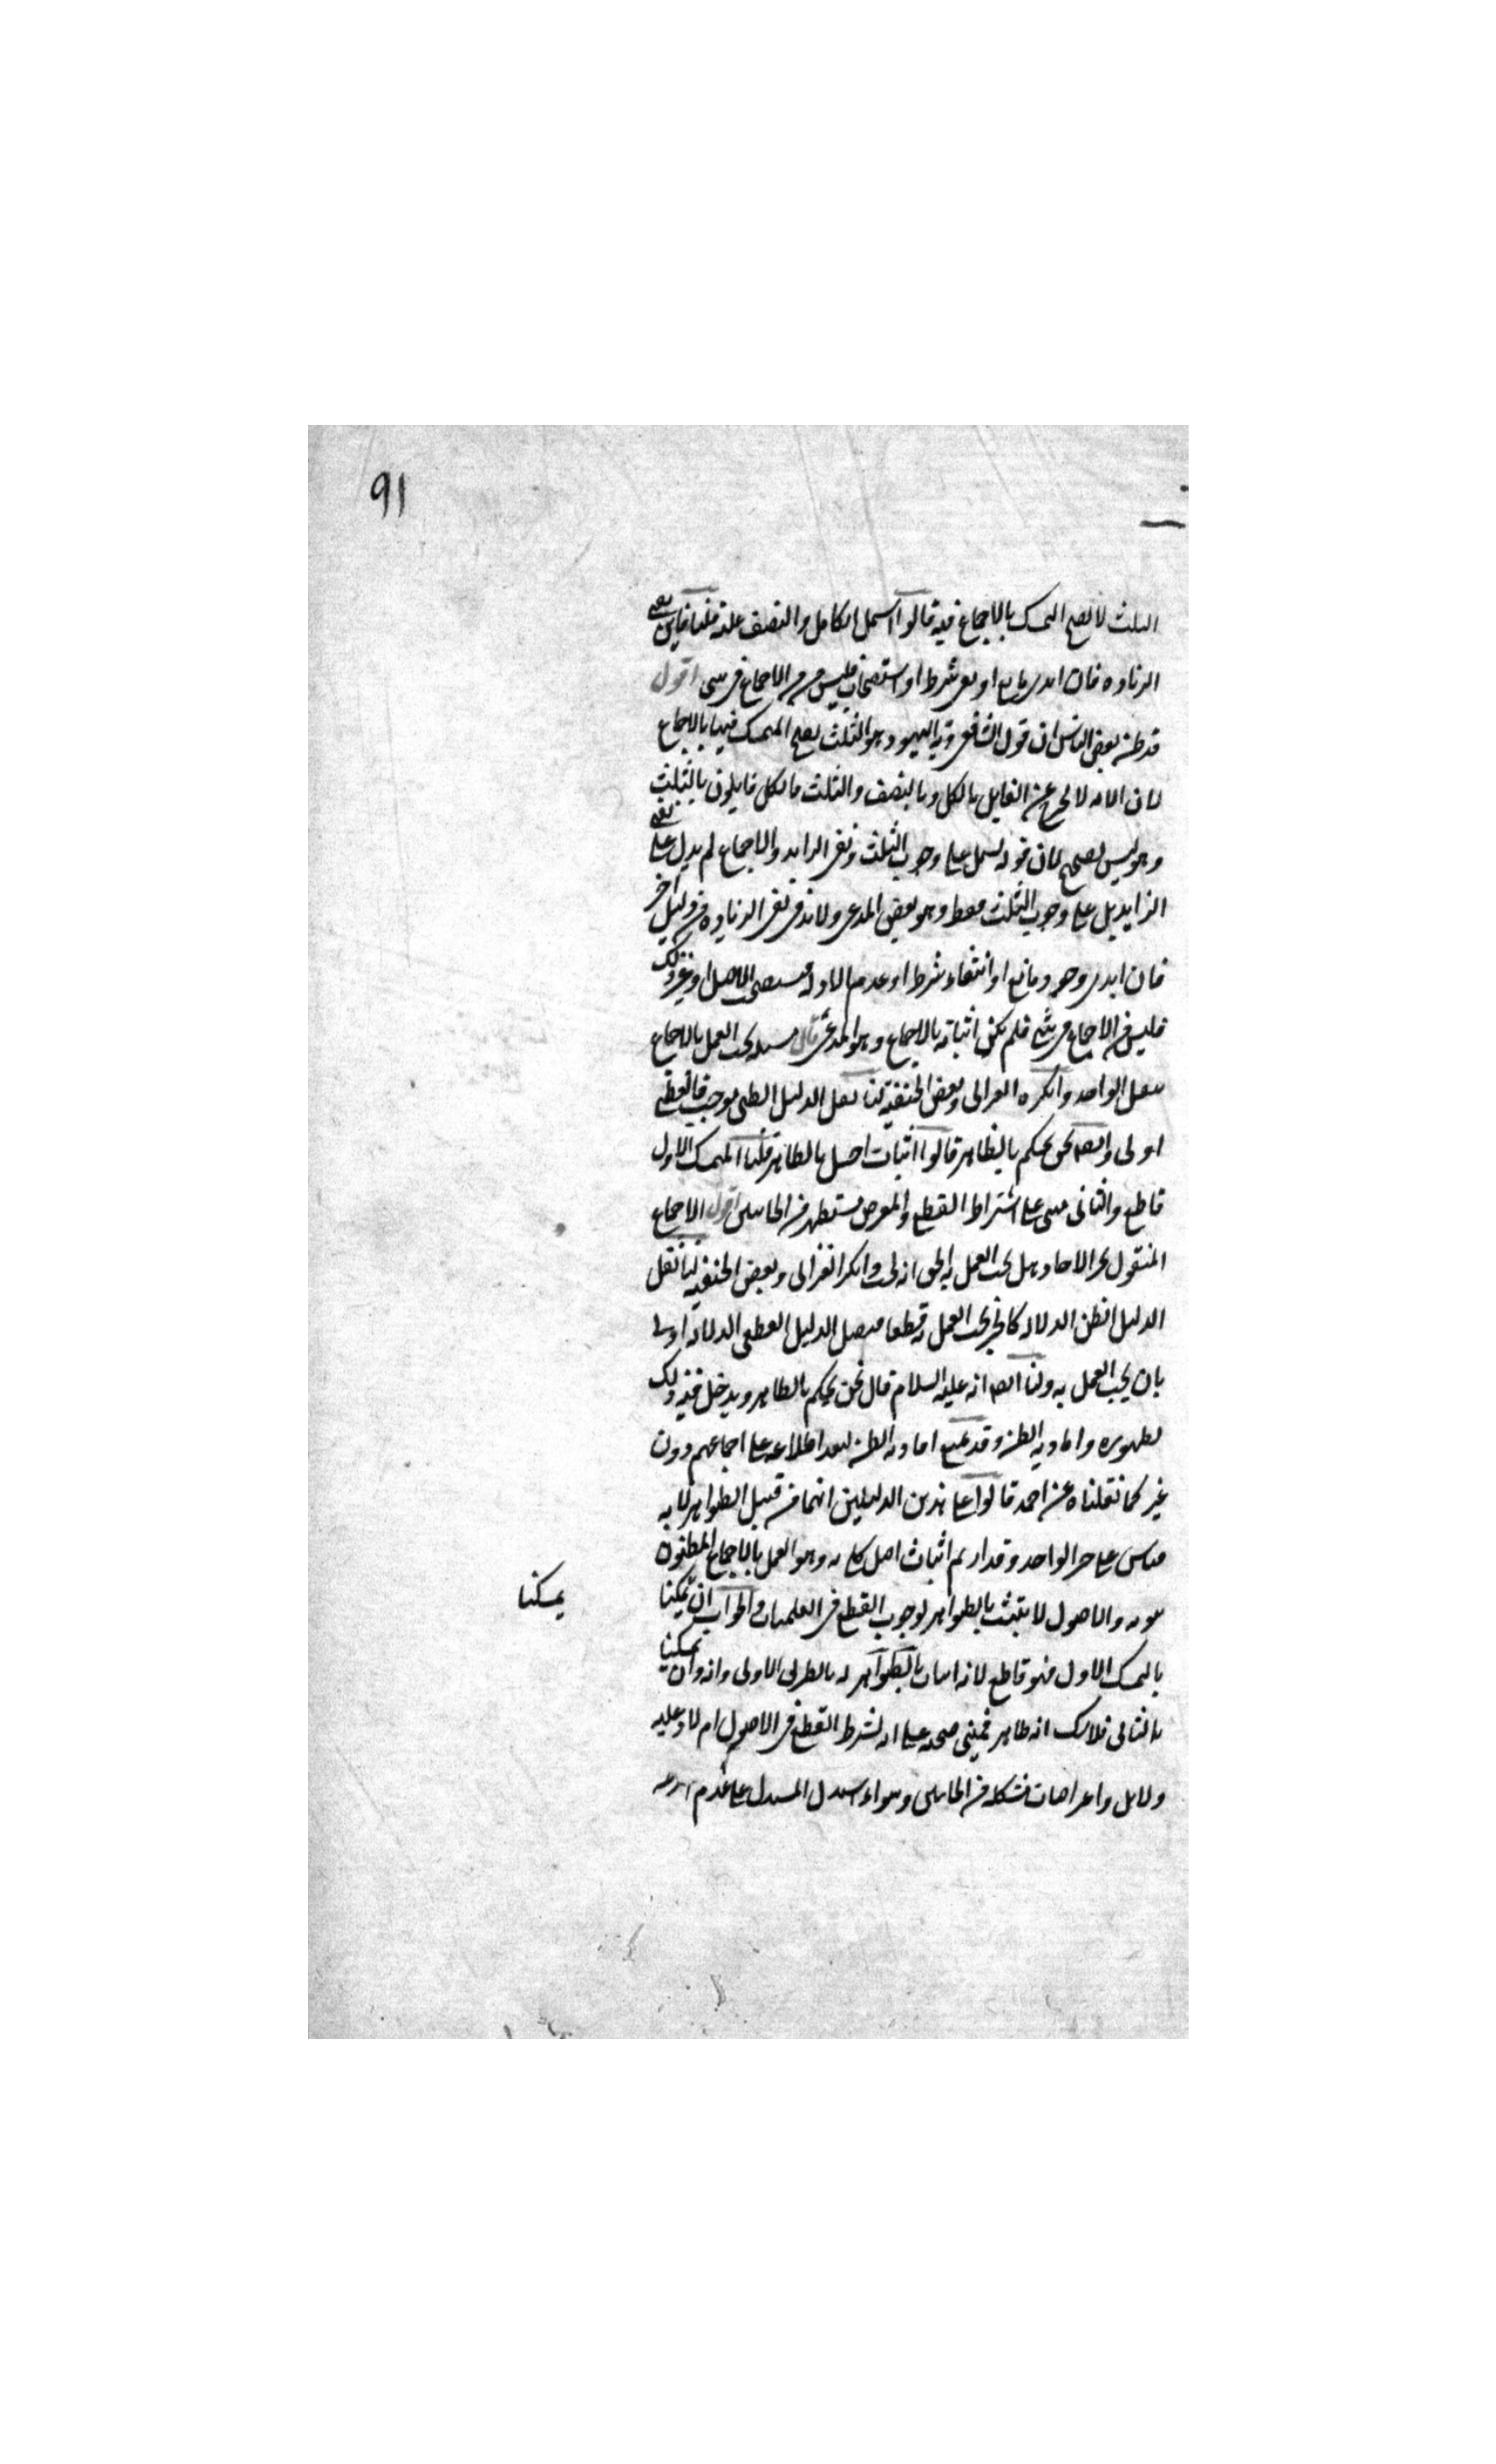 ٩١
الثلث لا يصح التمسك بالاجماع فيه قالوا اشتمل الكامل والنصف عليه قلنا فاين نفى
الزياده فان ابدى مانع او نفى شرط او استصحاب فليس من الاجماع فى شى اقول
قد ظن بعض الناس ان قول الشافعى دية اليهود هو الثلث يصح التمسك فيها بالاجماع
لان الامه لا يخرج عن القايل بالكل وبالنصف والثلث فالكل قايلون بالثلث
وهو ليس بصحيح لان قوله يشتمل على وجوب الثلث ونفى الزايد والاجماع لم يدل على نفى
الزايد بل على وجوب الثلث فقط وهو بعض المدعى ولا بد فى نفى الزياده من دليل آخر
فان ابدى وجود مانع او انتفاء شرط او عدم الادلة فيستصحب الاصل او غير ذلك
فليس من الاجماع فى شئ فلم يكن اثباته بالاجماع وهو المدعى قال مسله يجب العمل بالاجماع
بنقل الواحد وانكره الغزالى وبعض الحنفيه لنا نقل الدليل الظنى موجب فالقطعى
اولى وايضا نحن نحكم بالظاهر قالوا اثبات اصل بالظاهر قلنا المتمسك الاول
قاطع والثانى مبنى على اشتراط القطع والمعترض مستظهر من الجانبين اقول الاجماع
المنقول بخبر الاحاد هل يجب العمل به الحق انه يجب وانكر الغزالى وبعض الحنفيه لنا نقل
الدليل الظن الدلاله كالخبر يجب العمل به قطعا فنقل الدليل القطعى الدلاله اولى
بان يجب العمل به ولنا ايضا انه عليه السلام قال نحن نحكم بالظاهر ويدخل فيه ذلك
لظهوره وافادته الظن وقد يمنع افادته الظن لبعد اطلاعه على اجماعهم دون
غير كما نقلناه عن احمد قالوا على هذين الدليلين انهما من قبيل الظواهر لانه
قياس على خبر الواحد وقد اريد بهم اثبات اصل كلى به وهو العمل بالاجماع المظنون
ثبوته والاصول لا يثبت بالظواهر لوجوب القطع فى العلميات والجواب ان تمسكنا
تمسكنا
بالتمسك الاول فهو قاطع لانه اثبات بالظواهر له بالطريق الاولى وانه وان تمسكنا
بالثانى فلا شك انه ظاهر فيبنى صحته على انه يشترط القطع فى الاصول ام لا وعليه
دلايل واعتراضات مشكله من الجانبين وسواء استدل المستدل على عدم